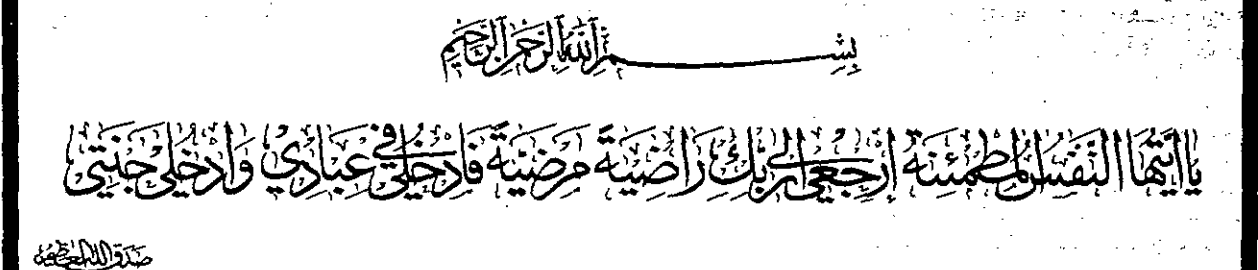 بِسْمِ اللَّهِ الرَّحْمَنِ الرَّحِيمِ
يا أيتها النفس المطمئنة إرجعي إلى ربك راضية مرضية فادخلي في عبادي وادخلي جنتي
صدق الله العظيم